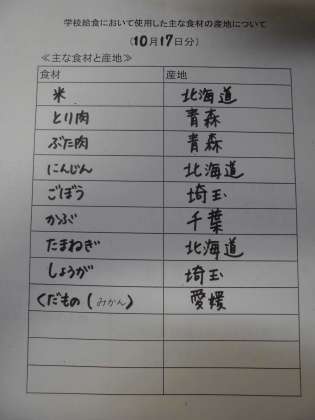 学校給食において使用した主な食材の産地について
(10月17日分)
≪主な食材と産地≫
食材 産地
米 北海道
とり肉 青森
ぶた肉 青森
にんじん 北海道
ごぼう 埼玉
かぶ 千葉
たまねぎ 北海道
しょうが 埼玉
くだもの(みかん) 愛媛